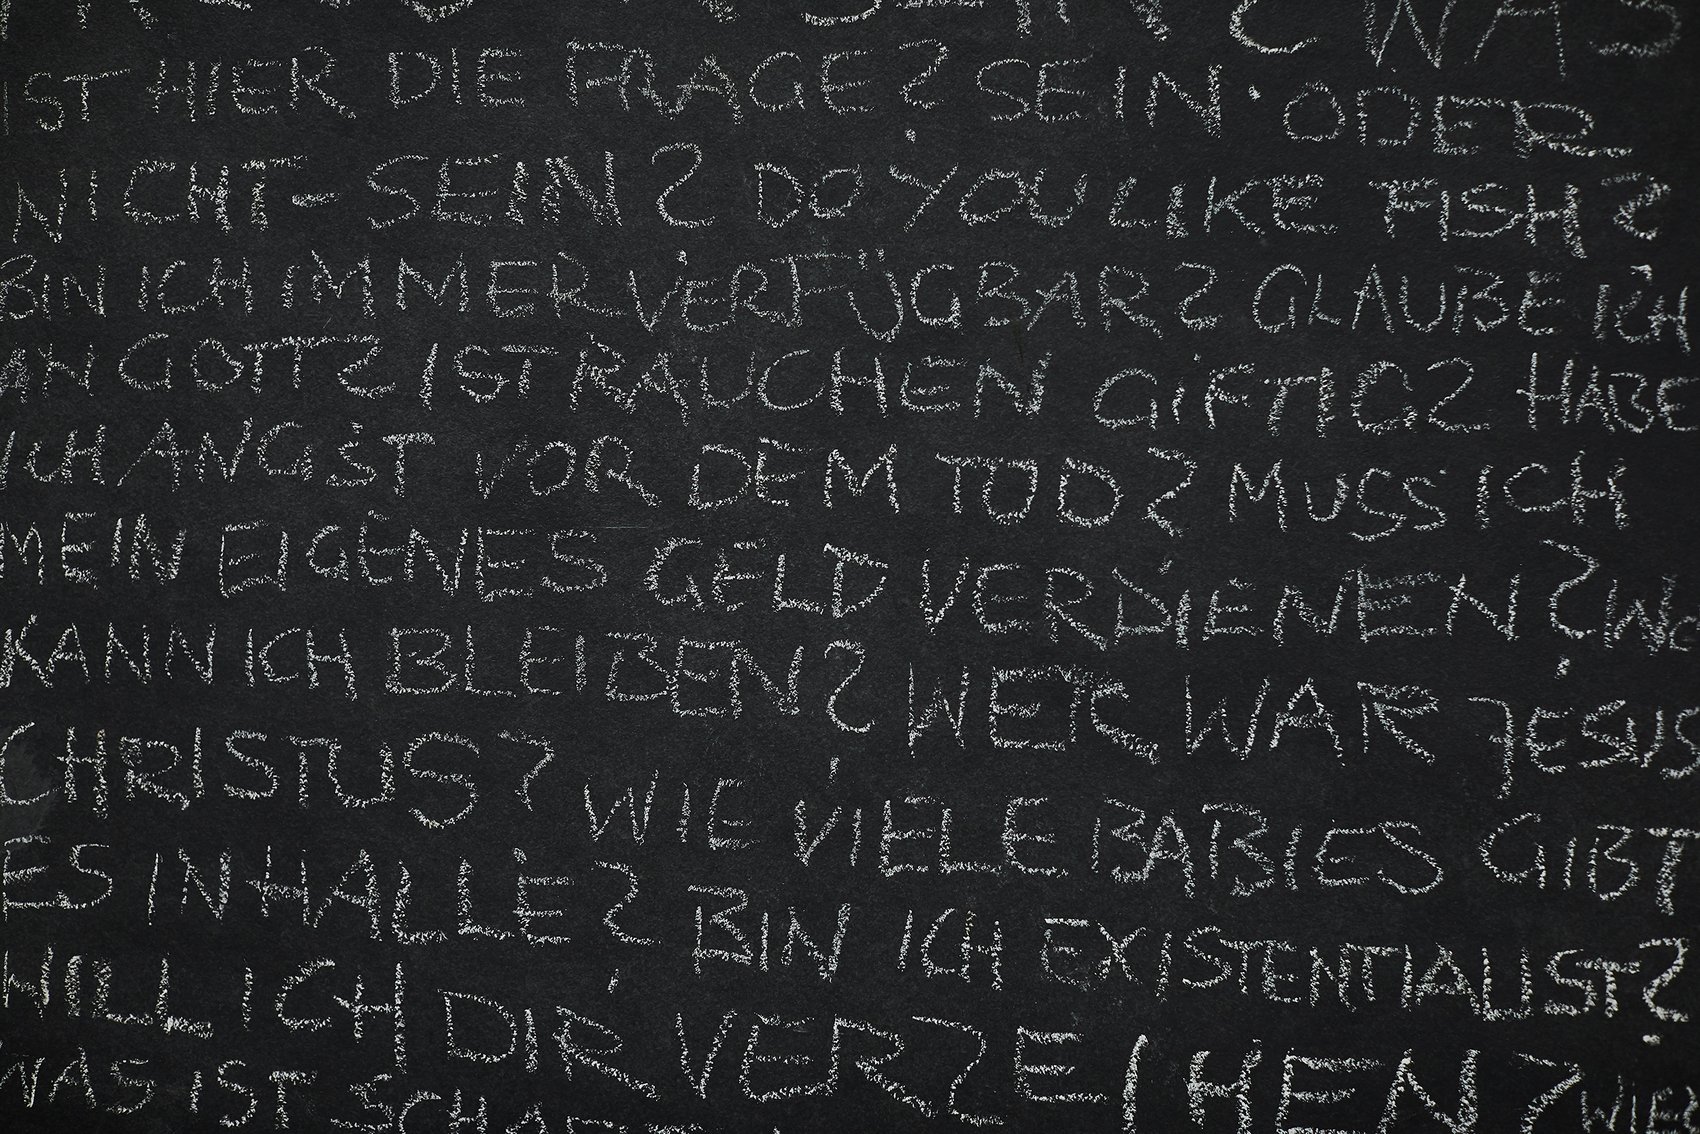 ? WAS
IST HIER DIE FRAGE? SEIN ODER
NICHT-SEIN? DO YOU LIKE FISH?
BIN ICH IMMER VERFÜGBAR? GLAUBE ICH
AN GOTT? IST RAUCHEN GIFTIG? HABE
ICH ANGST VOR DEM TOD? MUSS ICH
MEIN EIGENES GELD VERDIENEN? WO
KANN ICH BLEIBEN? WER WAR JESUS
CHRISTUS? WIE VIELE BABIES GIBT
ES IN HALLE? BIN ICH EXISTENTIALIST?
WILL ICH DIR VERZEIHEN? WIE
WAS IST